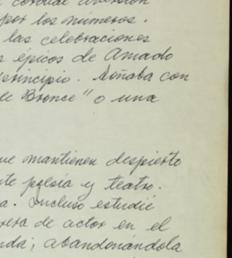 cordial aversión
por los números.
las celebraciones
épicos de Amado
principio. Soñaba con
de Bronce" o una
que mantienen despierto
poesía y teatro.
Incluso estudié
carrera de actor en el
abandonándola